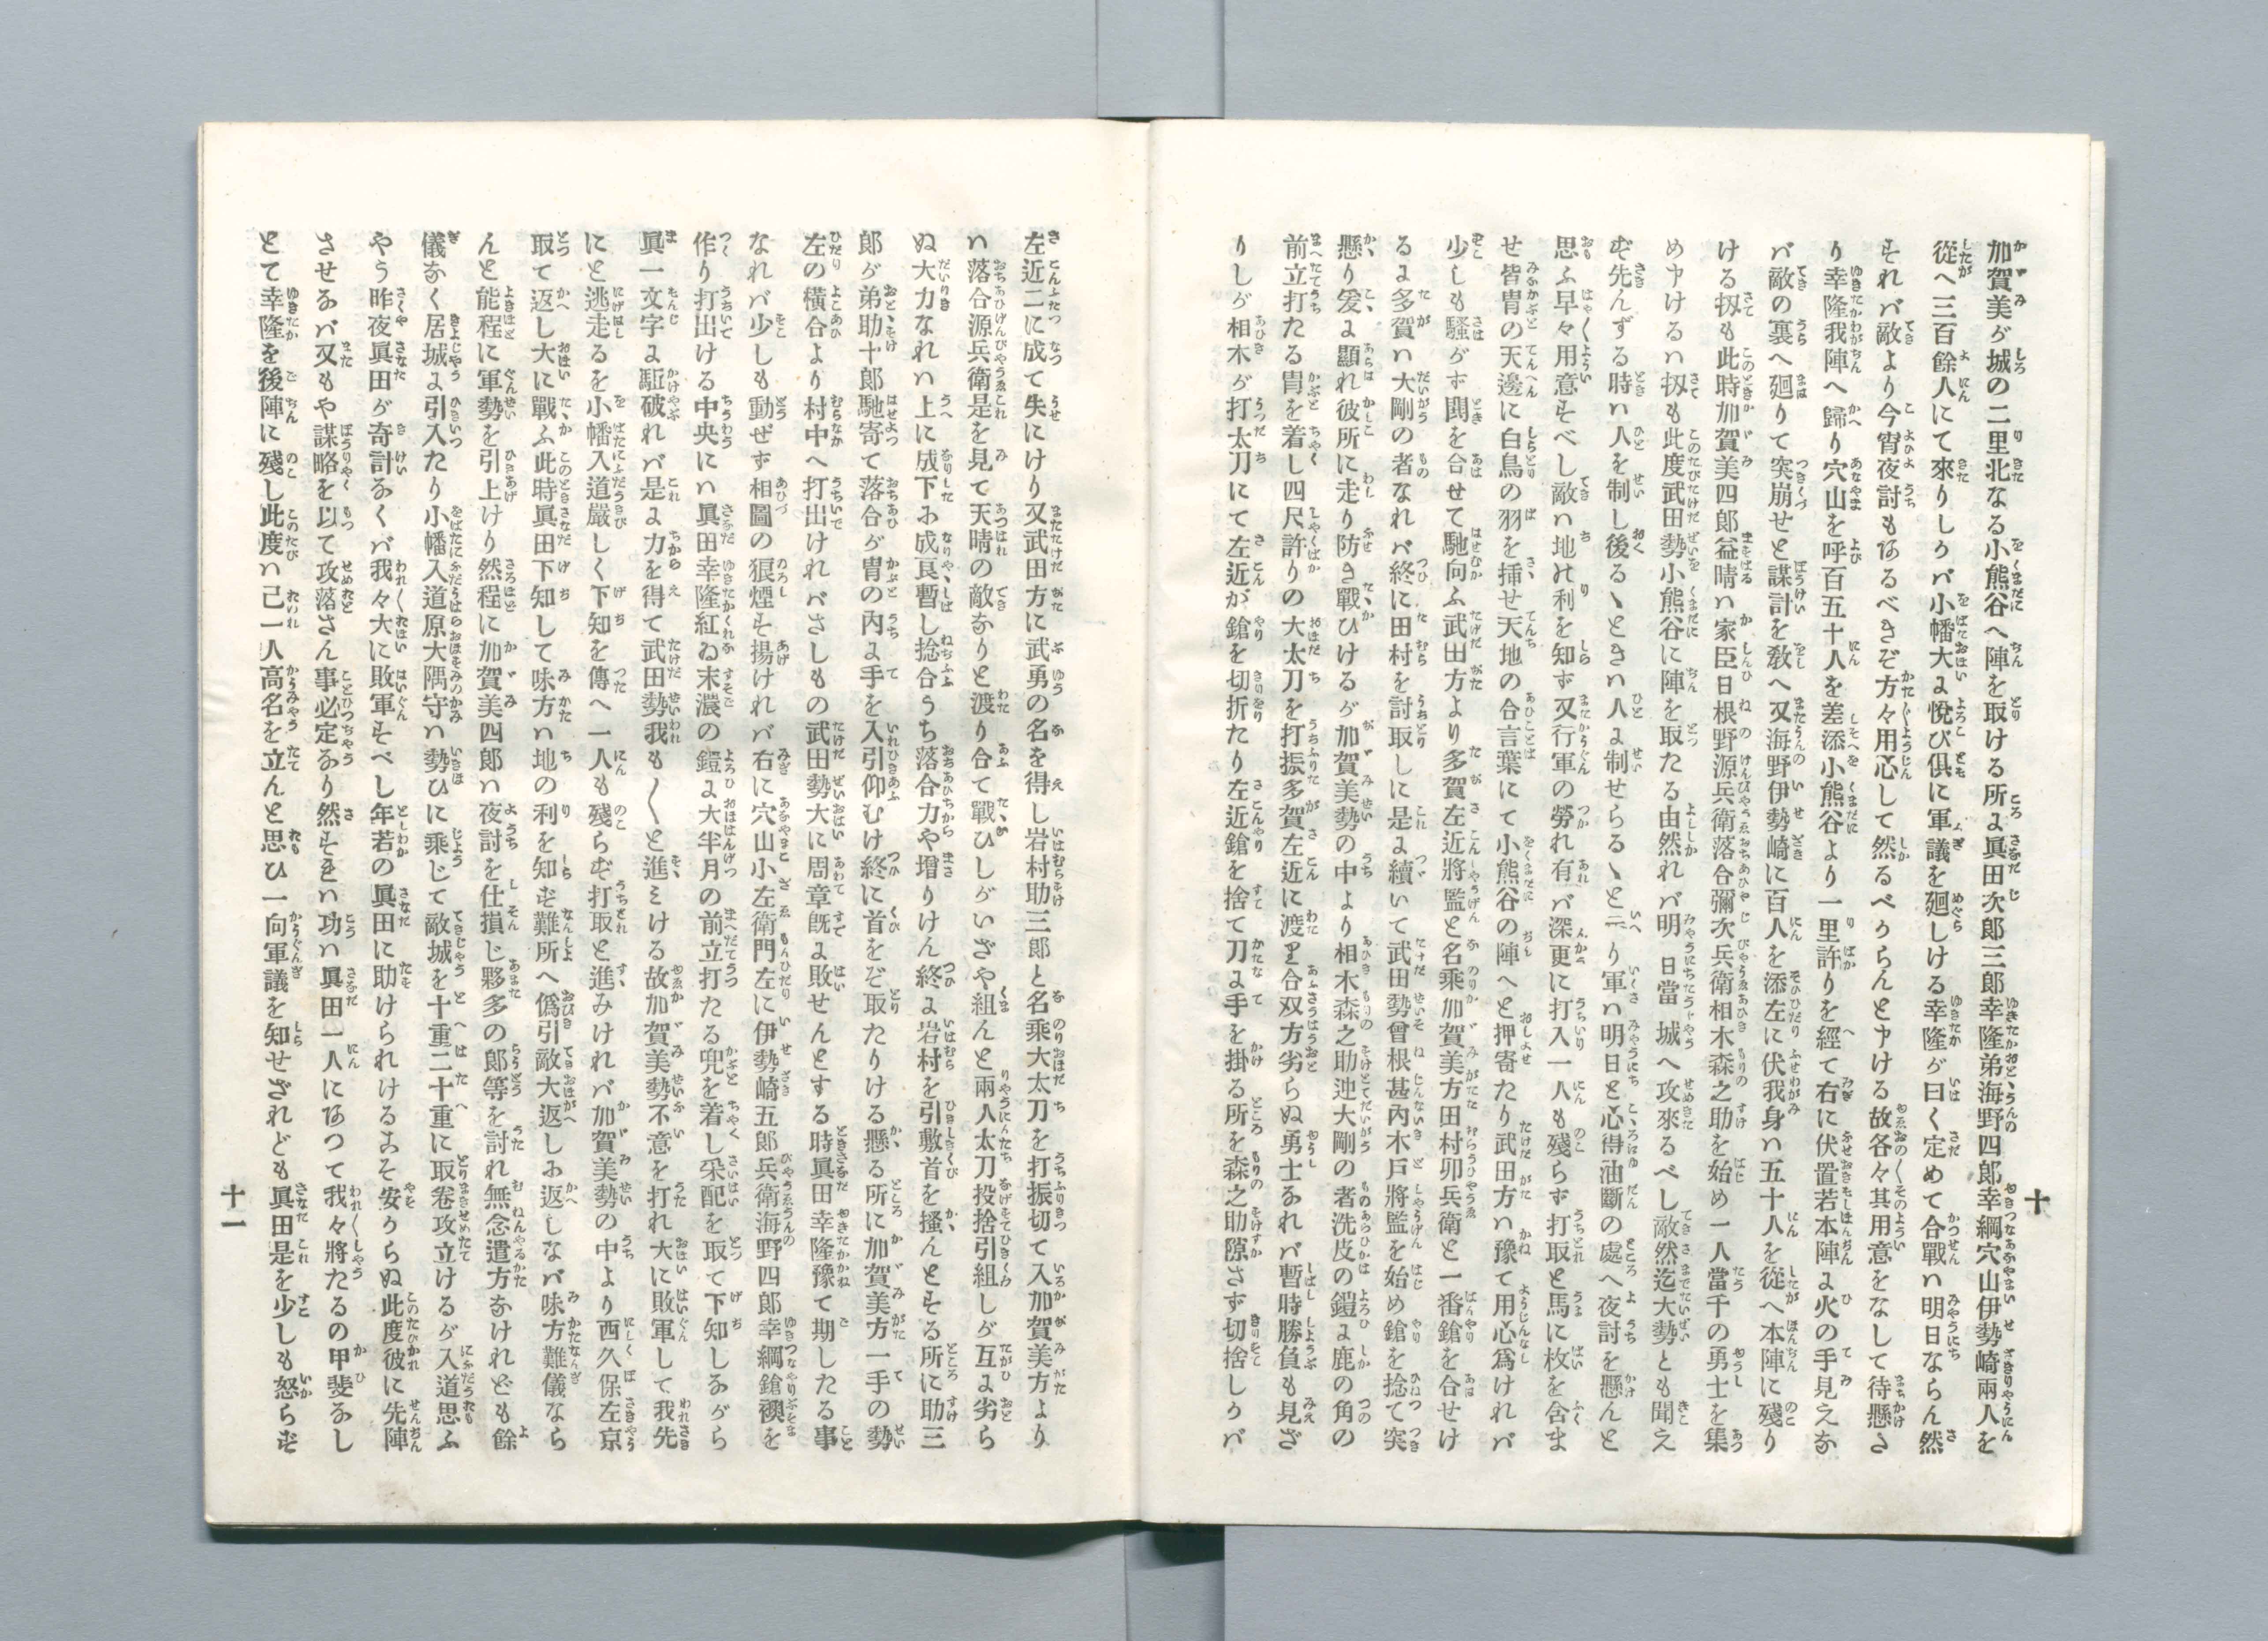 十
加賀美が城の二里北なる小熊谷へ陣を取ける所に眞田次郎三郎幸隆弟海野四郎幸綱穴山伊勢崎兩人を
從へ三百餘人にて來りしかバ小幡大に悅び俱に軍議を廻しける幸隆が曰く定めて合戰ハ明日ならん然
それバ敵より今宵夜討もあるべきぞ方々用心して然るべからんと申ける故各々其用意をなして待懸さ
り幸隆我陣へ歸り穴山を呼百五十人を差添小熊谷より一里許りを經て右に伏置若本陣に火の手見えな
バ敵の裏へ廻りて突崩せと謀計を敎へ又海野伊勢崎に百人を添左に伏我身ハ五十人を從へ本陣に殘り
ける扨も此時加賀美四郎益晴ハ家臣日根野源兵衛落合彌次兵衛相木森之助を始め一人當千の勇士を集
め申けるハ扨も此度武田勢小熊谷に陣を取たる由然れバ明日當城へ攻來るべし敵然迄大勢とも聞え
ず先んずる時ハ人を制し後るゝときハ人に制せらるゝと云り軍ハ明日と心得油斷の處へ夜討を懸んと
思ふ早々用意すべし敵ハ地の利を知ず又行軍の勞れ有バ深更に打入一人も殘らず打取と馬に枚を含ま
せ皆冑の天邊に白鳥の羽を挿せ天地の合言葉にて小熊谷の陣へと押寄たり武田方ハ豫て用心爲けれバ
少しも騷がず鬨を合せて馳向ふ武田方より多賀左近將監と名乘加賀美方田村卯兵衛と一番鎗を合せけ
るに多賀ハ大剛の者なれバ終に田村を討取しに是に續いて武田勢曾根甚內木戶將監を始め鎗を捻て突
懸り爰に顯れ彼所に走り防き戰ひけるが加賀美勢の中より相木森之助迚大剛の者洗皮の鎧に鹿の角の
前立打たる冑を着し四尺許りの大太刀を打振多賀左近に渡り合双方劣らぬ勇士なれバ暫時勝負も見ざ
りしが相木が打太刀にて左近が鎗を切折たり左近鎗を捨て刀に手を掛る所を森之助隙さず切捨しかバ
左近二に成て失にけり又武田方に武勇の名を得し岩村助三郎と名乘大太刀を打振切て入加賀美方より
ハ落合源兵衛是を見て天晴の敵なりと渡り合て戰ひしがいざや組んと兩人太刀投捨引組しが互に劣ら
ぬ大力なれハ上に成下に成良暫し捻合うち落合力や增りけん終に岩村を引敷首を搔んとする所に助三
郎が弟助十郎馳寄て落合が冑の內に手を入引仰むけ終に首をぞ取たりける懸る所に加賀美方一手の勢
左の橫合より村中へ打出けれバさしもの武田勢大に周章旣に敗せんとする時眞田幸隆豫て期したる事
なれバ少しも動ぜず相圖の狼煙を揚けれバ右に穴山小左衛門左に伊勢崎五郎兵衛海野四郎幸綱鎗襖を
作り打出ける中央にハ眞田幸隆紅ゐ末濃の鎧に大半月の前立打たる兜を着し采配を取て下知しながら
眞一文字に駈破れバ是に力を得て武田勢我も〱と進ミける故加賀美勢不意を打れ大に敗軍して我先
にと逃走るを小幡入道嚴しく下知を傳へ一人も殘らず打取と進みけれバ加賀美勢の中より西久保左京
取て返し大に戰ふ此時眞田下知して味方ハ地の利を知ず難所へ僞引敵大返しに返しなバ味方難儀なら
んと能程に軍勢を引上けり然程に加賀美四郎ハ夜討を仕損じ夥多の郎等を討れ無念遣方なけれども餘
儀なく居城に引入たり小幡入道原大隅守ハ勢ひに乘じて敵城を十重二十重に取卷攻立けるが入道思ふ
やう昨夜眞田が奇計なくバ我々大に敗軍すべし年若の眞田に助けられけるこそ安からぬ此度彼に先陣
させなバ又もや謀略を以て攻落さん事必定なり然するときハ功ハ眞田一人にあつて我々將たるの甲斐なし
とて幸隆を後陣に殘し此度ハ己一人高名を立んと思ひ一向軍議を知せざれども眞田是を少しも怒らず
十一